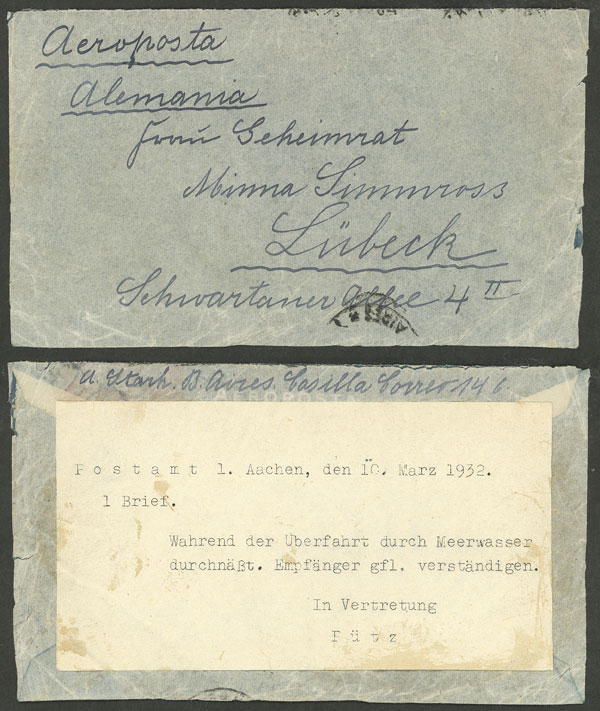 Aeroposta
Alemania
Frau Geheimrat
Minna Simmross
Lübeck
Schwartauer Allee 4 II
AIRES
B. Aires. Casilla Correo 146
P o s t a m t 1. Aachen, den 10. Marz 1932.
1 Brief.
Wahrend der Uberfahrt durch Meerwasser
durchnäßt. Empfänger gfl. verständigen.
In Vertretung
P ü t z